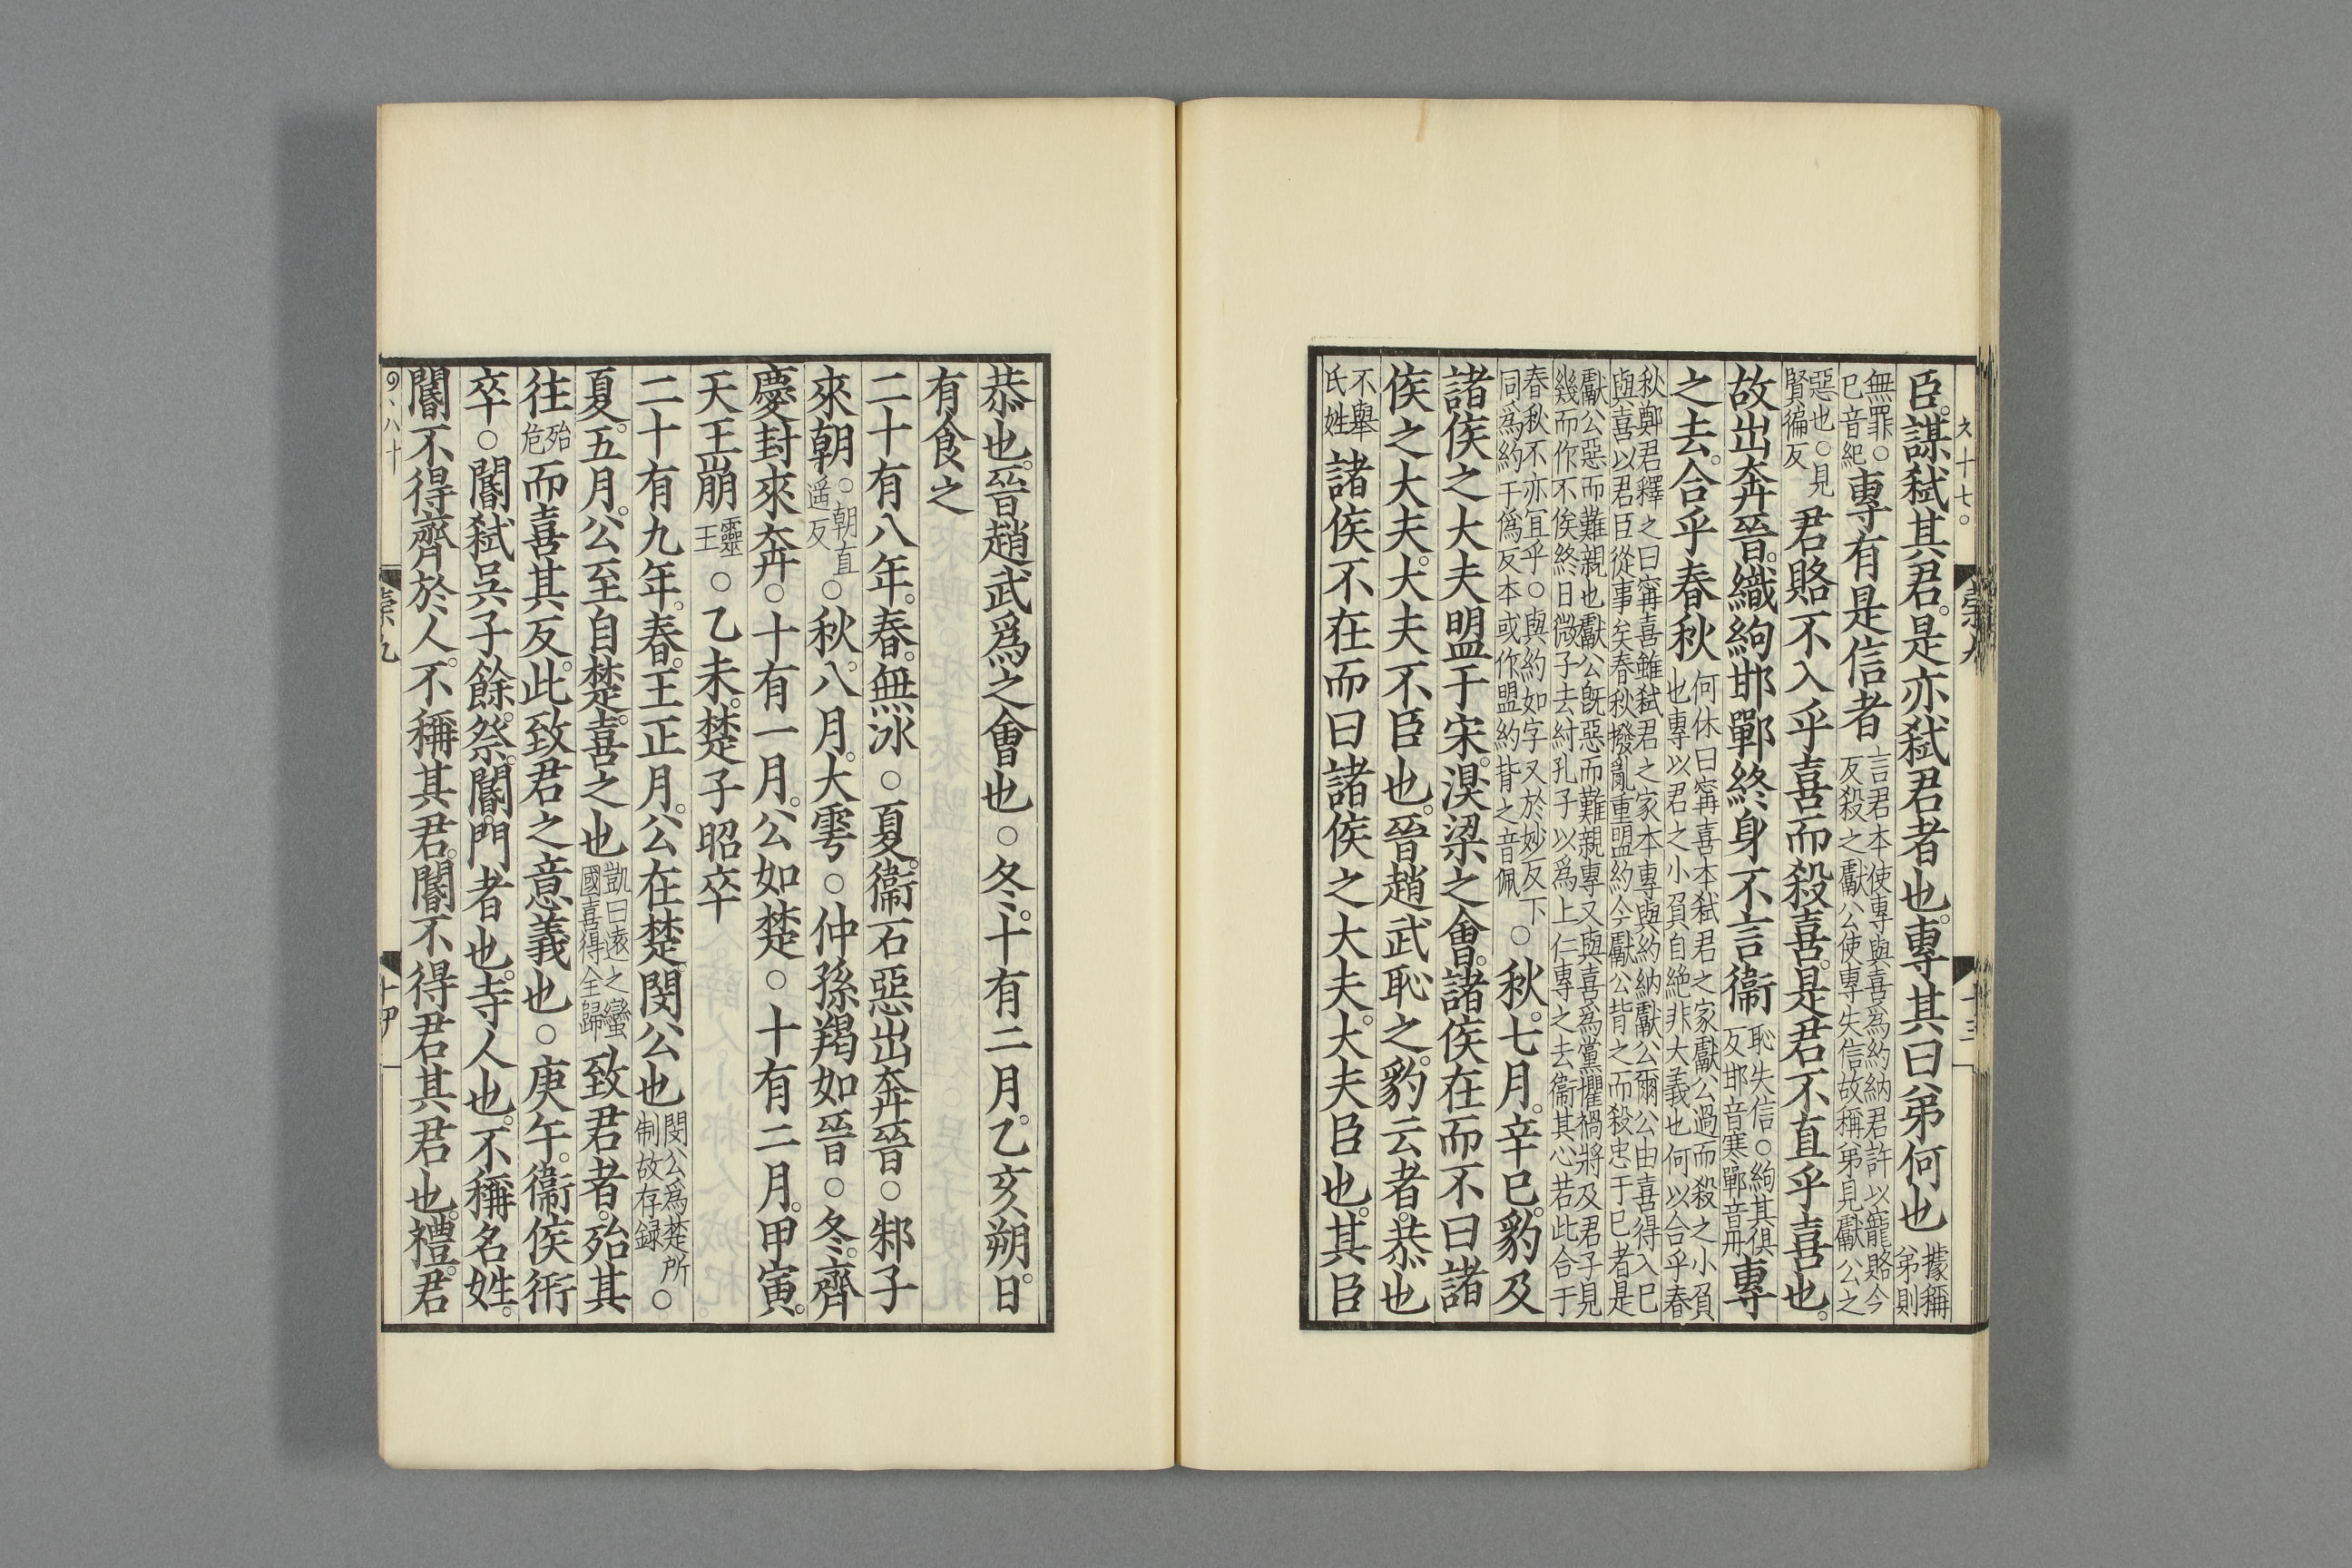 臣。謀弒其君。是亦弒君者也。專其曰弟何也據稱弟則
無罪。○巳音紀專有是信者言君本使專與喜爲約納君許以寵賂今反殺之獻公使專失信故稱弟見獻公之
惡也。○見賢徧反君賂不入乎喜而殺喜。是君不直乎喜也。
故出奔晉。織絇邯鄲終身不言衞恥失信。○絇其俱反邯音寒鄲音丹專
之去。合乎春秋何休曰甯喜本弒君之家獻公過而殺之小負也專以君之小負自絕非大義也何以合乎春
秋鄭君釋之曰甯喜雖弒君之家本專與約納獻公爾公由喜得入巳與喜以君臣從事矣春秋撥亂重盟約今獻公背之而殺忠于巳者是
獻公惡而難親也獻公旣惡而難親專又與喜爲黨懼禍將及君子見幾而作不俟終日微子去紂孔子以爲上仁專之去衞其心若此合于
春秋不亦宜乎。○與約如字又於妙反下同爲約于僞反本或作盟約背之音佩○秋。七月。辛巳。豹及
諸侯之大夫盟于宋。湨梁之會。諸侯在而不曰諸
侯之大夫。大夫不臣也。晉趙武恥之。豹云者。恭也
不舉氏姓諸侯不在而曰諸侯之大夫。大夫臣也。其臣
恭也。晉趙武爲之會也○冬。十有二月。乙亥朔。日
有食之
二十有八年。春。無冰○夏。衞石惡出奔晉○邾子
來朝。○朝直遥反○秋。八月。大雩○仲孫羯如晉○冬。齊
慶封來奔○十有一月。公如楚○十有二月。甲寅。
天王崩靈王○乙未。楚子昭卒
二十有九年。春。王正月。公在楚。閔公也閔公爲楚所制故存録○
夏。五月。公至自楚。喜之也凱曰遠之蠻國喜得全歸致君者。殆其
往殆危而喜其反。此致君之意義也○庚午。衞侯衎
卒○閽弒吳子餘祭。閽。門者也。寺人也。不稱名姓。
閽不得齊於人。不稱其君。閽不得君其君也。禮。君